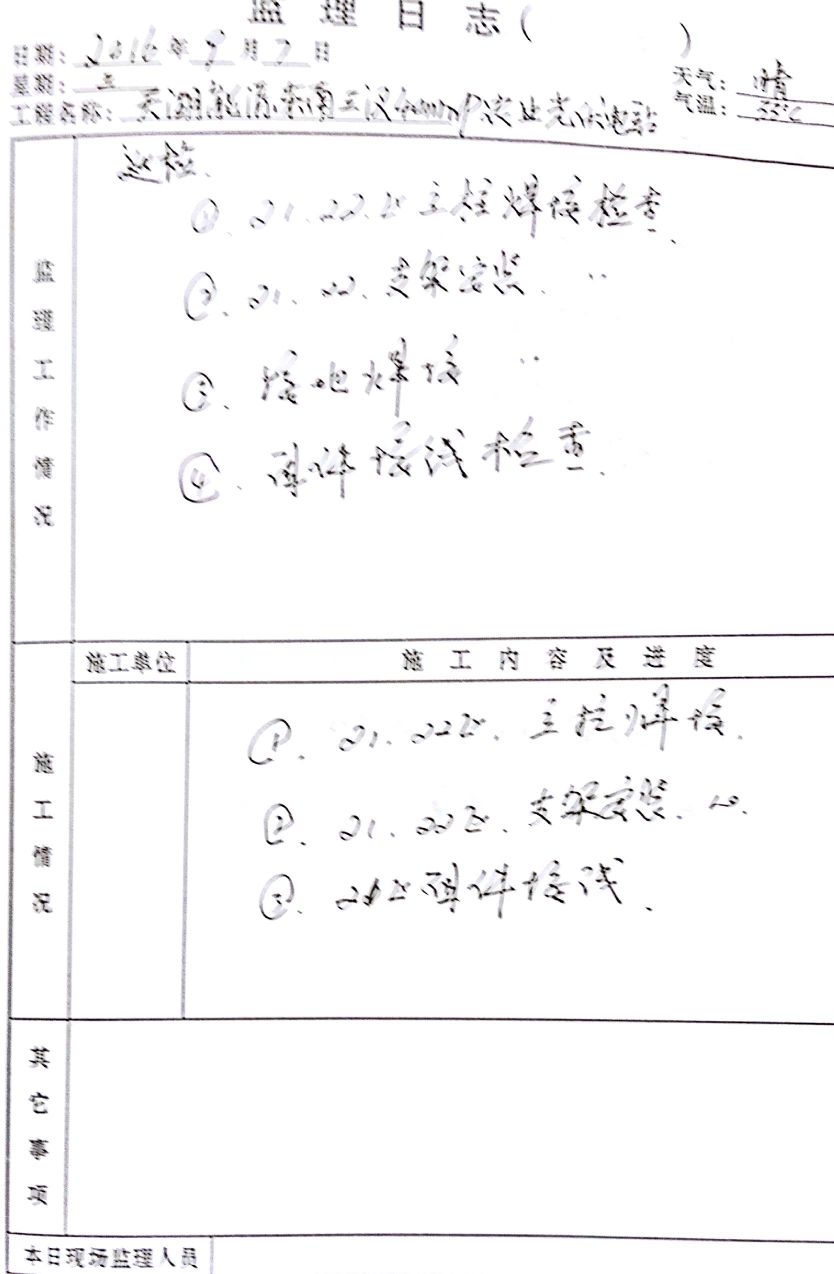 监 理 日 志 ( )
日期: 2016 年 9 月 7 日
星期: 天气: 晴
工程名称: 气温: 35℃
监理工作情况
巡检.
①. 21. 22. 区 主柱焊接检查.
②. 21. 22. 支架安装. 〃
③. 接地焊接 〃
④. 组件接线检查.
施工情况
施工单位 施工内容及进度
①. 21. 22区. 主柱焊接.
②. 21. 22区. 支架安装.
③. 区组件接线.
其它事项
本日现场监理人员